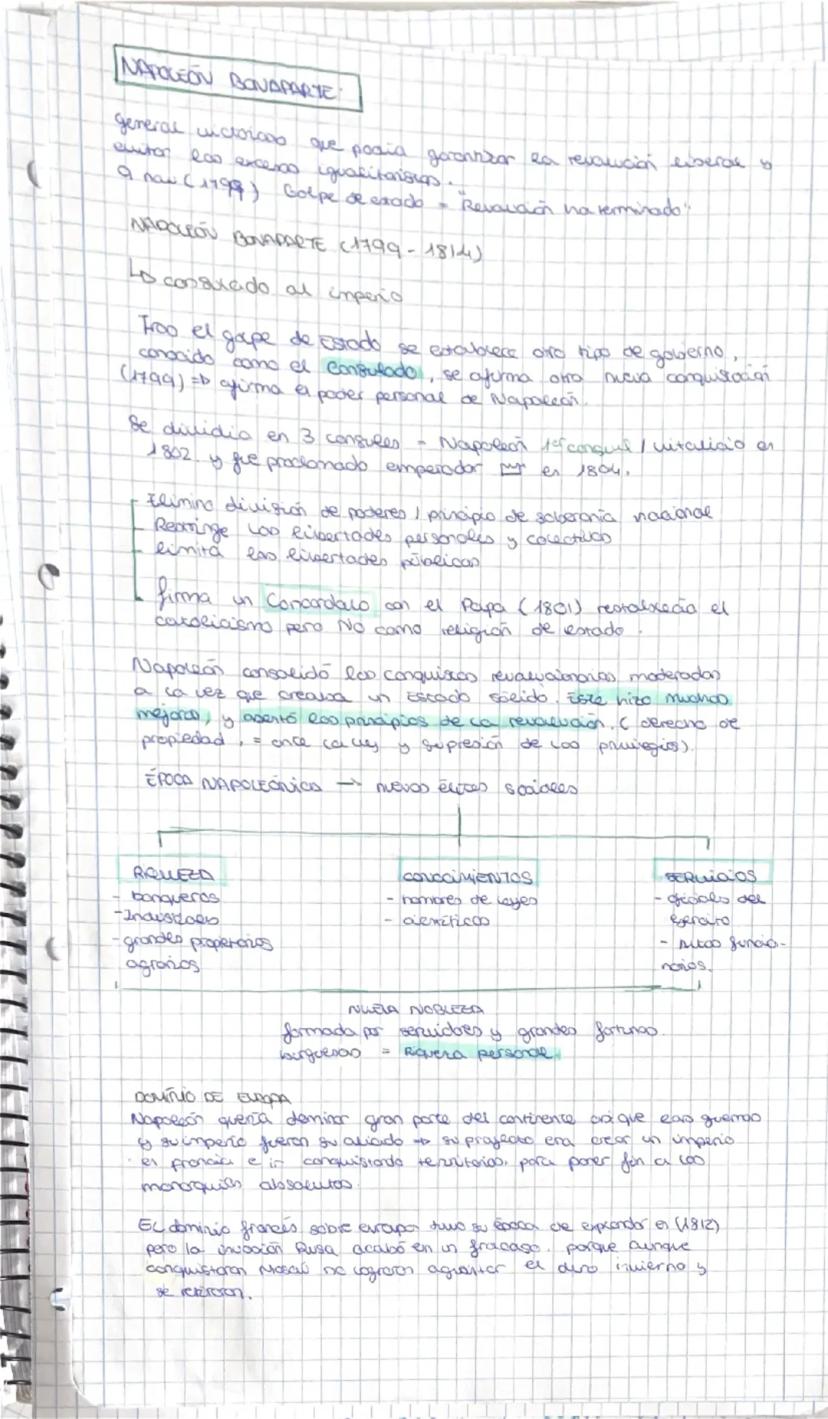 NAPOLEÓN BONAPARTE
general victorioso que podía garantizar la revolución liberal y
evitar los excesos igualitarios.
9 nov (1799) Golpe de estado = "Revolución ha terminado"
NAPOLEÓN BONAPARTE (1799 - 1814)
↳ consulado al imperio
Tras el golpe de Estado se establece otro tipo de gobierno,
conocido como el Consulado, se afirma otra nueva constitución
(1799) => afirma el poder personal de Napoleón.
Se dividía en 3 consules - Napoleón 1er consul / vitalicio en
1802. y fue proclamado emperador en 1804.
- Elimino división de poderes / principio de soberanía nacional
- Restringe las libertades personales y colectivas
- limita las libertades públicas
- firma un Concordato con el Papa (1801) restablecía el
catolicismo pero NO como religión de estado.
Napoleón consolidó las conquistas revolucionarias moderadas
a la vez que creaba un Estado sólido. Este hizo muchas
mejoras, y asentó los principios de la revolución. (derecho de
propiedad, = ante la ley y supresión de los privilegios).
ÉPOCA NAPOLEÓNICA → nuevas élites sociales
RIQUEZA
- banqueros
- Industriales
- grandes propetarios
agrarios
CONOCIMIENTOS
- hombres de leyes
- científicos
SERVICIOS
- oficiales del
ejercito
- altos funcio-
narios.
NUEVA NOBLEZA
formada por servidores y grandes fortunas
burguesas = Riqueza personal.
DOMÍNIO DE EUROPA
Napoleón quería dominar gran parte del continente así que las guerras
y su imperio fueron su aliado → su proyecto era crear un imperio
en francia e ir conquistando territorios, para poner fin a las
monarquías absolutas.
El dominio francés sobre europa tuvo su época de explendor en (1812)
pero la invasión Rusa acabó en un fracaso. porque aunque
conquistaron Moscú no lograron aguantar el duro invierno y
se retiraron.